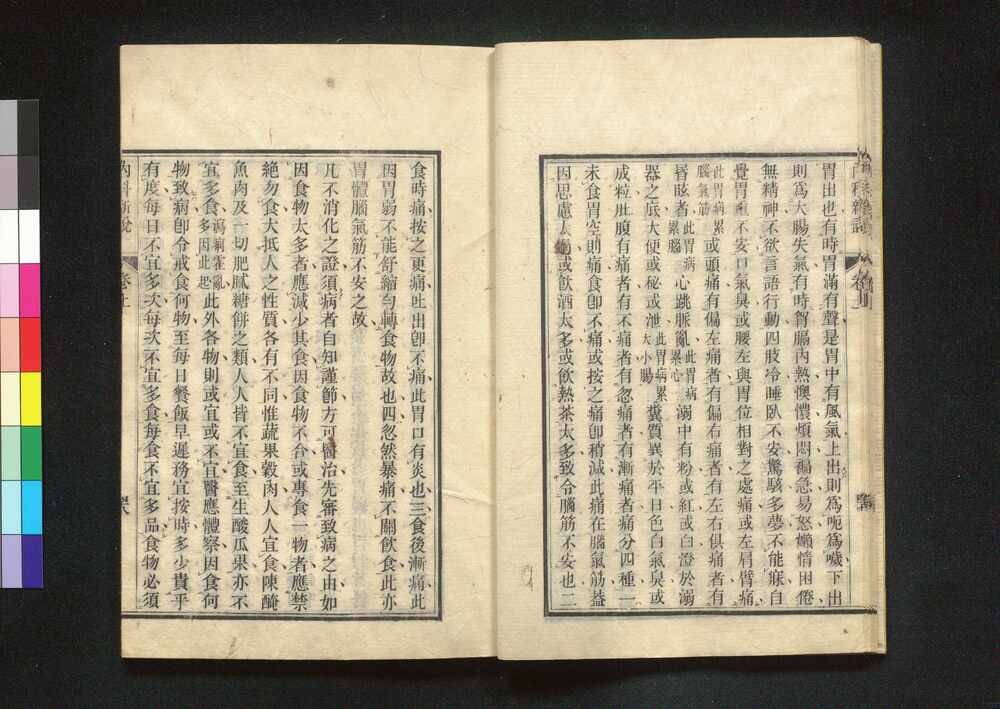 胃出也有時胃滿有聲是胃中有風氣上出則爲呃爲噦下出
則爲大腸失氣有時胷膈內熱懊憹煩悶褊急易怒嬾惰困倦
無精神不欲言語行動四肢冷睡臥不安驚駭多夢不能寐自
覺胃亂不安口氣臭或腰左與胃位相對之處痛或左肩臂痛
此胃病累腦氣筋或頭痛有偏左痛者有偏右痛者有左右俱痛者有
唇眩者此胃病累腦心跳脈亂此胃病累心溺中有粉或紅或白澄於溺
器之底大便或秘或泄此胃病累大小腸糞質異於平日色白氣臭或
成粒肚腹有痛者有不痛者有忽痛者有漸痛者痛分四種一
未食胃空則痛食卽不痛或按之痛卽稍減此痛在腦氣筋益
因思慮人過或飲酒太多或飲熱茶太多致令腦筋不安也二
食時痛按之更痛吐出卽不痛此胃口有炎也三食後漸痛此
因胃弱不能舒縮勻轉食物故也四忽然暴痛不關飲食此亦
胃體腦氣筋不安之故
凡不消化之證須病者自知謹節方可醫治先審致病之由如
因食物太多者應減少其食因食物不合或專食一物者應禁
絕勿食大抵人之性質各有不同惟蔬果穀肉人人宜食陳醃
魚肉及一切肥膩糖餅之類人人皆不宜食至生酸瓜果亦不
宜多食瀉痢霍亂多因此起此外各物則或宜或不宜醫應體察因食何
物致病卽令戒食何物至每日餐飯早遲務宜按時多少貴乎
有度每日不宜多次每次不宜多食每食不宜多品食物必須
內科新說 卷上